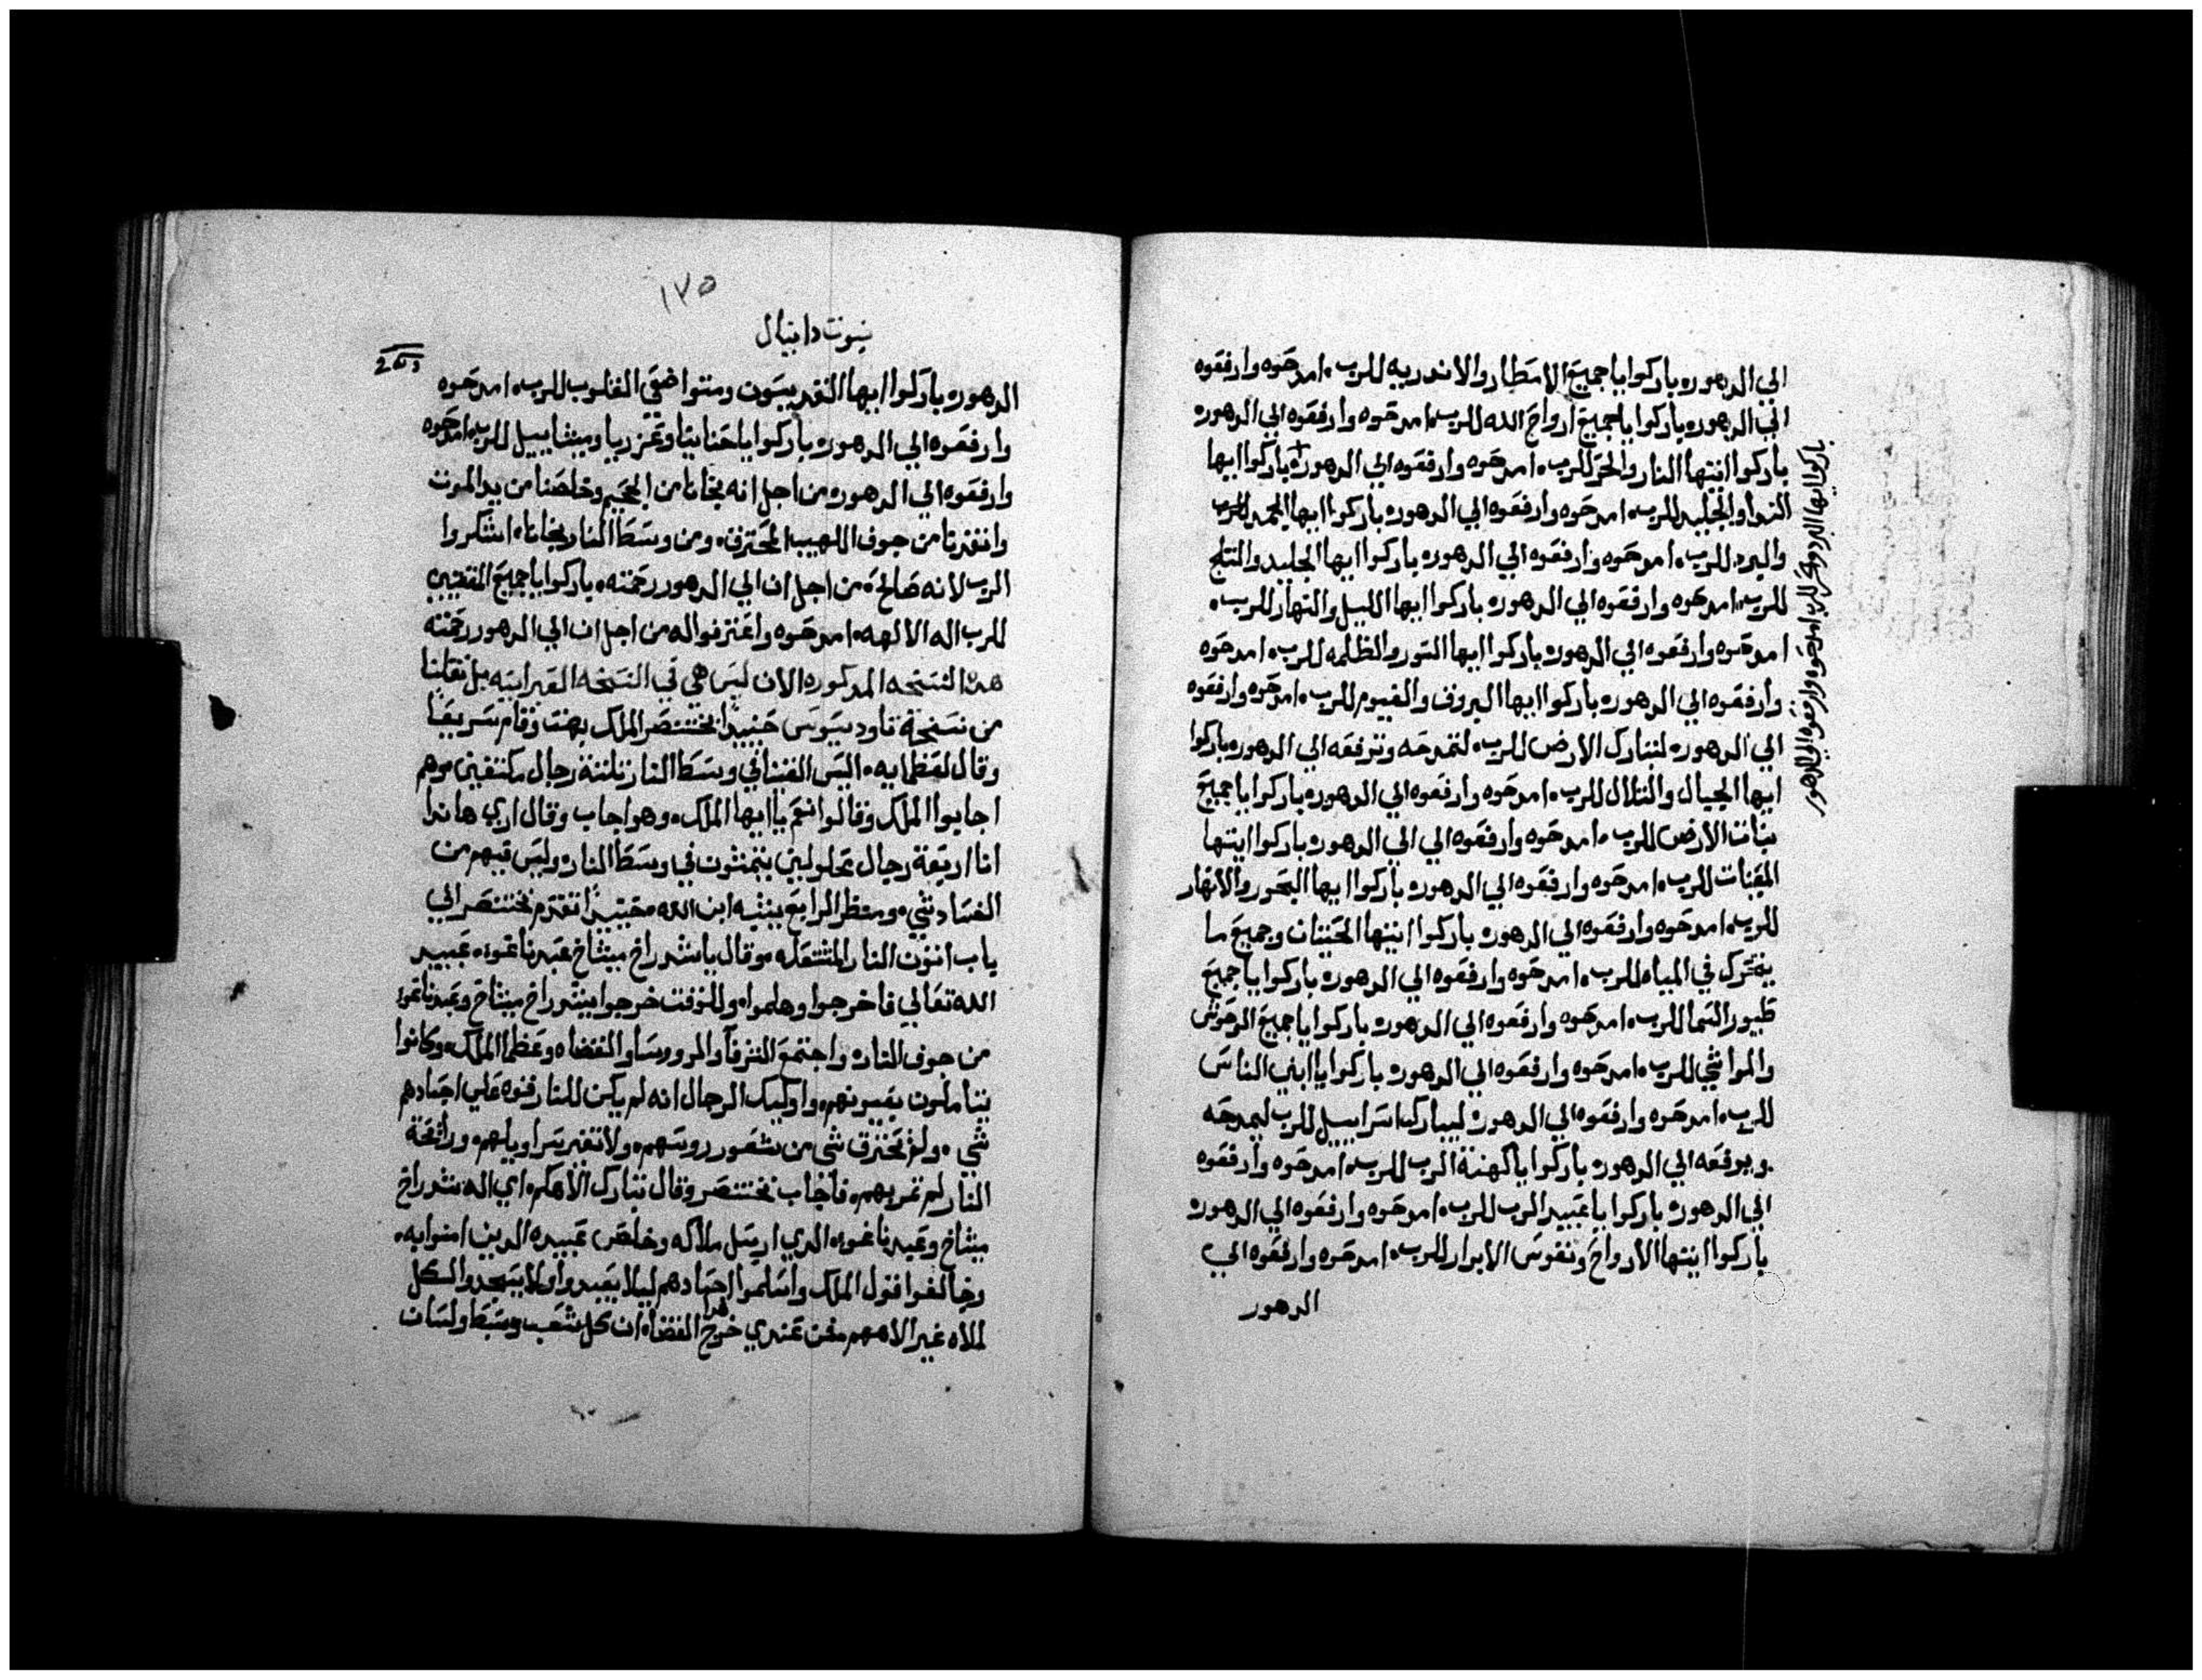 الي الدهور ه باركوا يا جميع الامطار والاندريه للرب ه امدحوه وارفعوه
الي الدهور ه باركوا يا جميع ارواح الله للرب ه امدحوه وارفعوه الي الدهور ه
باركوا ايتها النار والحر للرب ه امدحوه وارفعوه الي الدهور ه باركوا ايها
الندا والجليد للرب ه امدحوه وارفعوه الي الدهور ه باركوا ايها الجمد للرب
والبرد للرب ه امدحوه وارفعوه الي الدهور ه باركوا ايها الجليد والتلج
للرب ه امدحوه وارفعوه الي الدهور ه باركوا ايها الليل والنهار للرب ه
امدحوه وارفعوه الي الدهور ه باركوا ايها النور والظلمه للرب ه امدحوه
وارفعوه الي الدهور ه باركوا ايها البروق والغيوم للرب ه امدحوه وارفعوه
الي الدهور ه لتبارك الارض للرب ه لتمدحه وترفعه الي الدهور ه باركوا
ايها الجبال والتلال للرب ه امدحوه وارفعوه الي الدهور ه باركوا يا جميع
نبات الارض للرب ه امدحوه وارفعوه الي الي الدهور ه باركوا ايتها
المقينات للرب ه امدحوه وارفعوه الي الدهور ه باركوا ايها البحور والانهار
للرب ه امدحوه وارفعوه الي الدهور ه باركوا ايتها الحيتان وجميع ما
يتحرك في المياه للرب ه امدحوه وارفعوه الي الدهور ه باركوا يا جميع
طيور السما للرب ه امدحوه وارفعوه الي الدهور ه باركوا يا جميع الوحوش
والمواشي للرب ه امدحوه وارفعوه الي الدهور ه باركوا يا ابني الناس
للرب ه امدحوه وارفعوه الي الدهور ه ليبارك اسراييل للرب ليمدحه
ويرفعه الي الدهور ه باركوا يا كهنة الرب للرب ه امدحوه وارفعوه
الي الدهور ه باركوا يا عبيد الرب للرب ه امدحوه وارفعوه الي الدهور ه
باركوا ايتها الارواح ونفوس الابرار للرب ه امدحوه وارفعوه الي
الدهور
باركوا ايها البرد والحر للرب ه امدحوه وارفعوه الي الدهور
١٧٥
نبوت دانيال
الدهور ه باركوا ايها القديسون ومتواضعي القلوب للرب ه امدحوه
وارفعوه الي الدهور ه باركوا يا حنانيا وعزريا وميشاييل للرب ه امدحوه
وارفعوه الي الدهور ه من اجل انه نجانا من الجحيم وخلصنا من يد الموت
وانقذنا من جوف اللهيب المحترق ه ومن وسط النار نجانا ه اشكروا
الرب لانه صالح ه من اجل ان الي الدهور رحمته ه باركوا يا جميع المتقيين
للرب اله الالهه ه امدحوه واعترفوا له من اجل ان الي الدهور رحمته
هده النسخه المدكوره الان ليس هي في النسخه العبرانيه بل نقلنا
من نسخة تاودسيوس حينيدا بختنصر الملك بهت وقام سريعا
وقال لعظمايه ه اليس القينا في وسط النار تلتة رجال مكتفين ه وهم
اجابوا الملك وقالوا نعم يا ايها الملك ه وهو اجاب وقال اري هاندا
انا اربعة رجال محلولين يتمشون في وسط النار ه وليس فيهم من
الفساد شي ه ومنظر الرابع يشبه ابن الله ه حينيدا تقدم بختنصر الي
باب اتون النار المشتعله ه وقال يا شدراخ ميشاخ عبدناغوه ه عبيد
الله تعالي فاخرجوا وهلموا ه وللوقت خرجوا شدراخ ميشاخ وعبدناغو
من جوف النار ه واجتمع الشرفا والرووسا والقضاه وعظما الملك ه وكانوا
يتاملون بعيونهم ه واوليك الرجال انه لم يكن للنار قوه علي اجسادهم
شي ه ولم تحترق شي من شعور روسهم ه ولا تغير سراويلهم ه ورائحة
النار لم تمر بهم ه فاجاب بختنصر وقال تبارك الاهكم ه اي اله شدراخ
ميشاخ وعبدناغوه ه الدي ارسل ملاكه وخلص عبيده الدين امنوا به ه
وخالفوا قول الملك واسلموا اجسادهم ليلا يعبدوا ولا يسجدوا لكل
لالاه غير الاههم ه فمن عندي خرج هدا القضا ه ان كل شعب وسبط ولسان